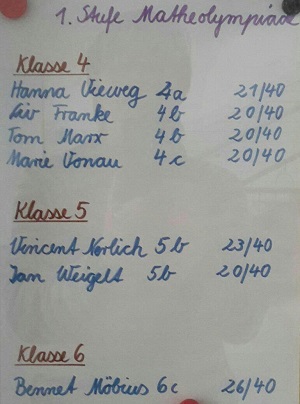 1. Stufe Matheolympiade
Klasse 4
Hanna Vieweg 4a 21/40
Liv Franke 4b 20/40
Tom Marx 4b 20/40
Marie Vonau 4c 20/40
Klasse 5
Vincent Norlich 5b 23/40
Jan Weigelt 5b 20/40
Klasse 6
Bennet Möbius 6c 26/40